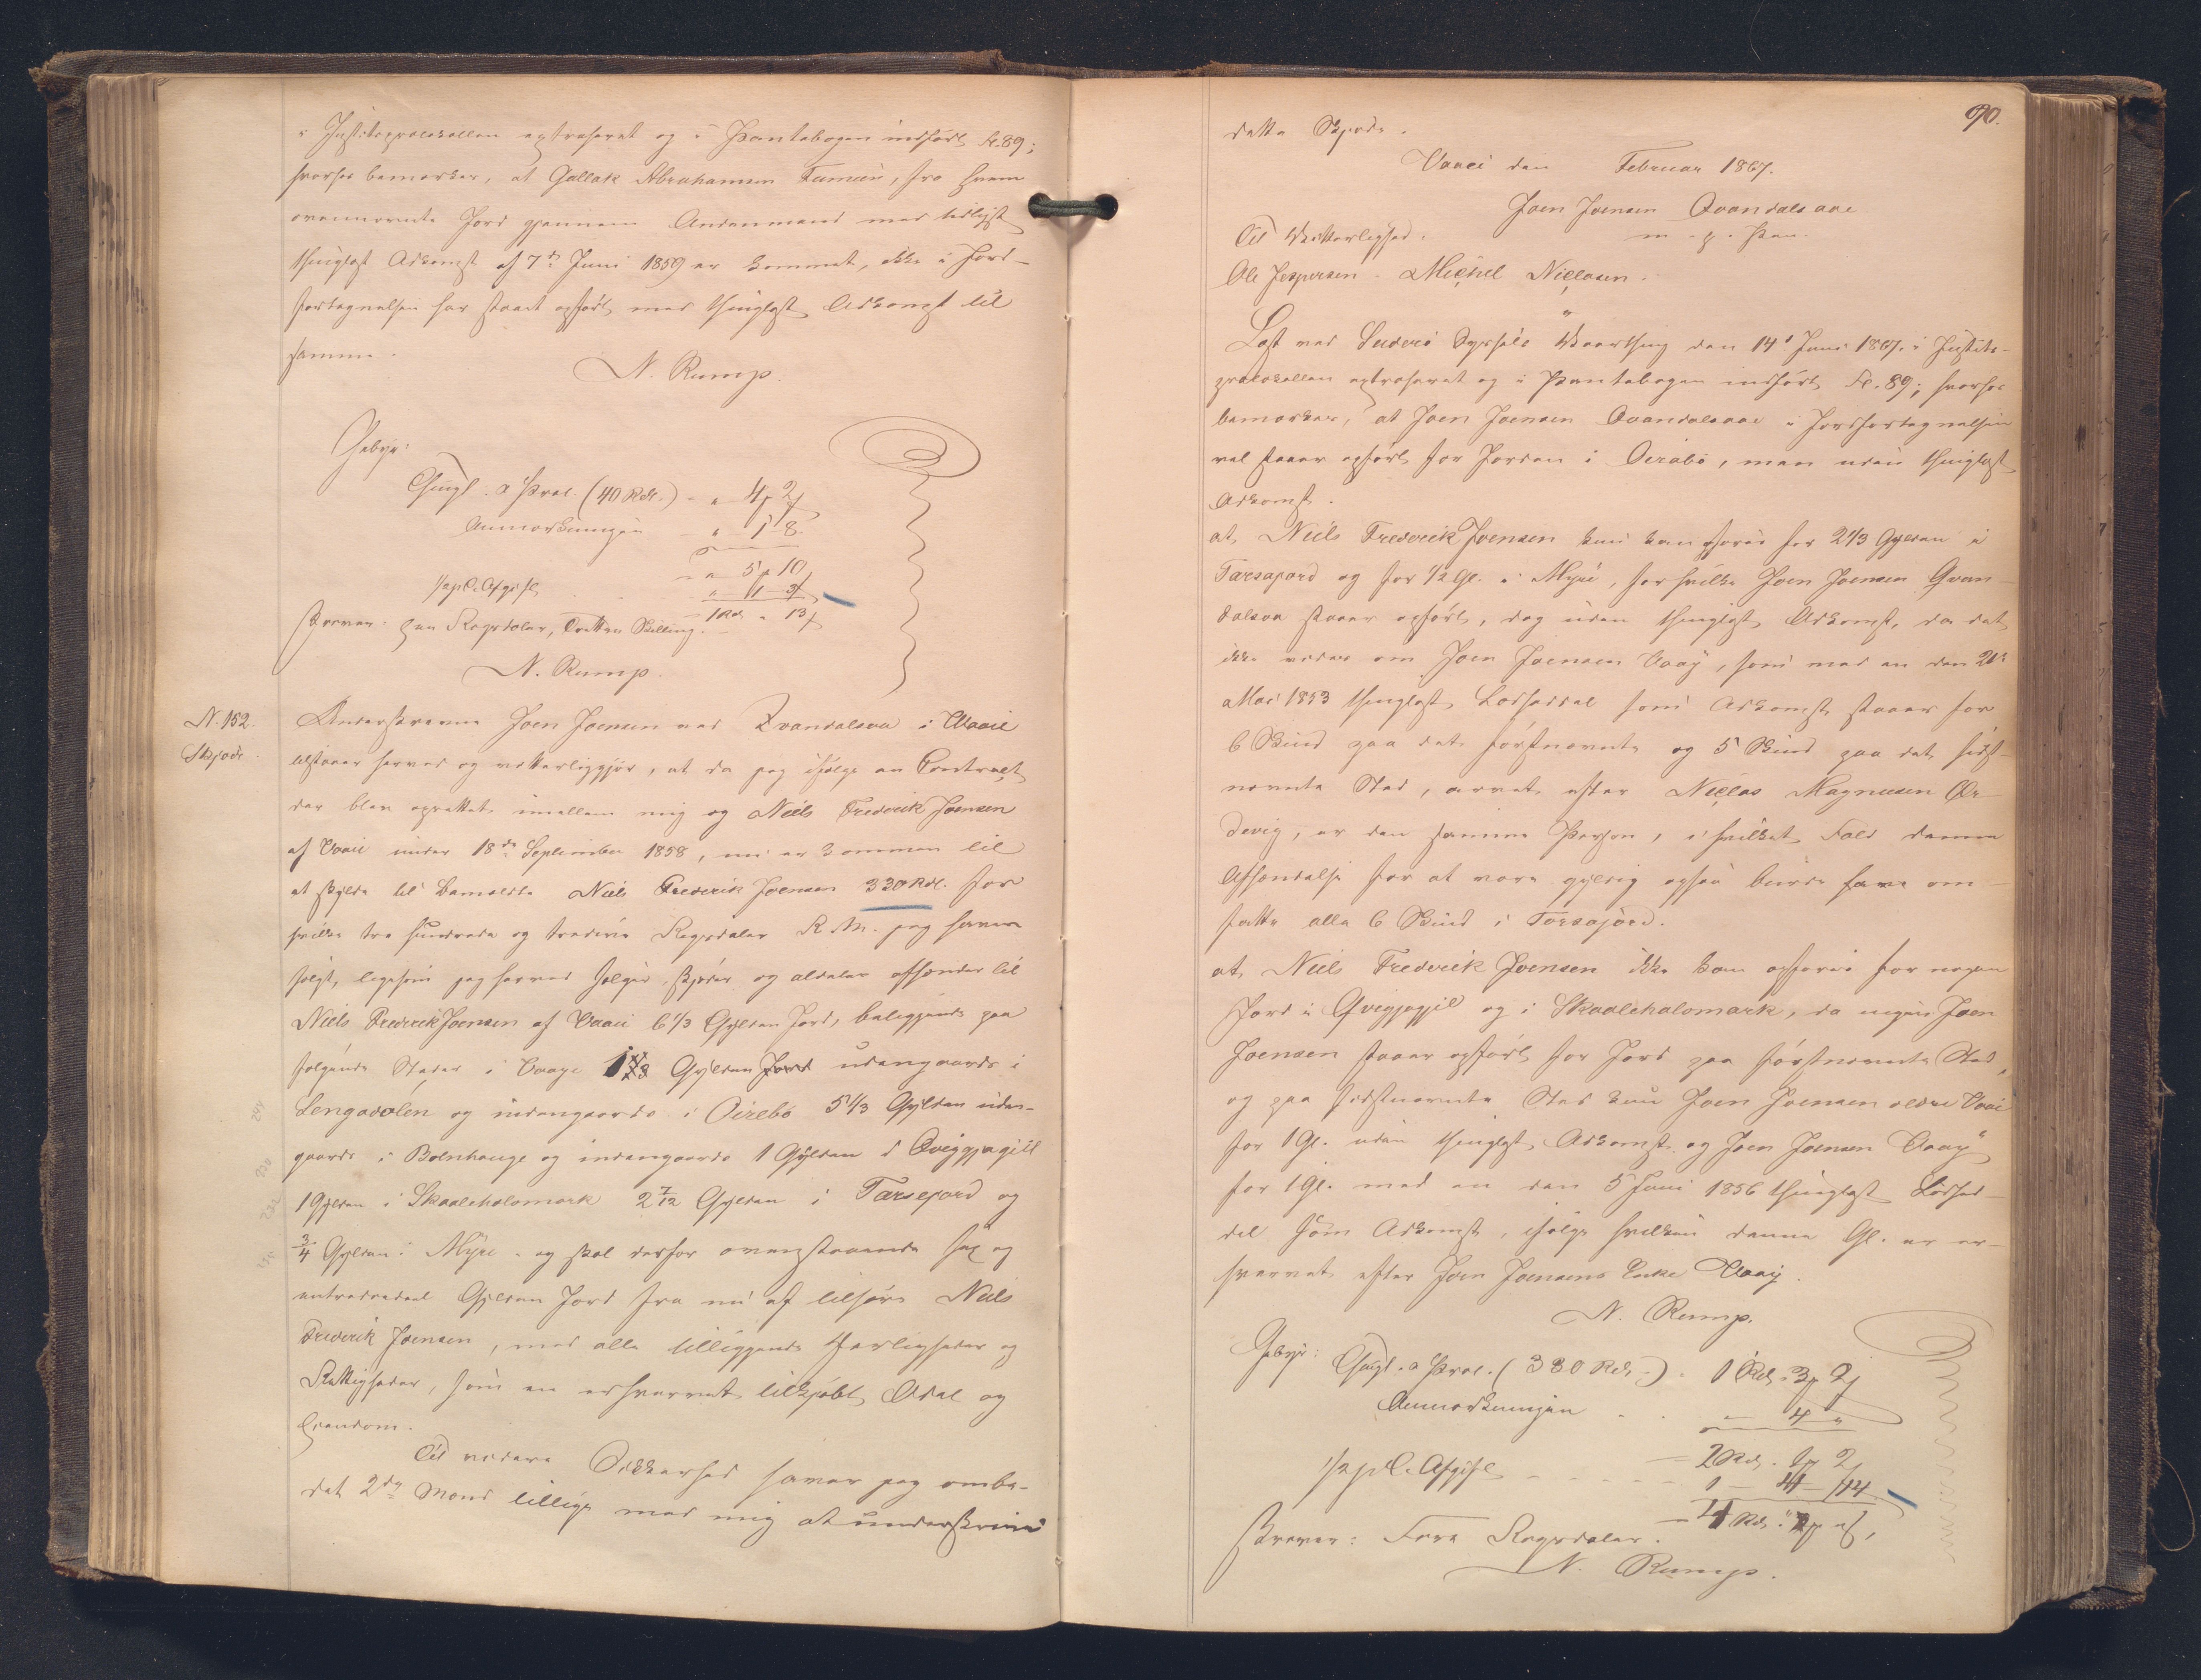 i Justitsprotokollen extraheret og i Pantebogen indført Fl. 89;
hvorhos bemærkes, at Gullak Abrahamsen Famien, fra hvem
ovennævnte Jord gjennem Andenmand med tidligst
thinglæst Adkomst af 7de Juni 1859 er kommet, ikke i Jord-
fortegnelsen har staaet opført med thinglæst Adkomst til
samme.
N. Rump.
Gebyr:
Thingl. a Prot. (40 Rdl.) - " 4 2
Anmærkningen - " 1 8
- " 5 10
½ pCt. Afgift
- 1 Rd. " 13
skriver: een Rigsdaler, tretten Skilling.
N. Rump.
N. 152.
Skjøde.
Underskrevne Joen Joensen ved Qvandalsaa i Vaaii
tilstaaer herved og vitterliggjør, at da jeg ifølge en Contract
der blev oprettet imellem mig og Niels Frederik Joensen
af Vaaii under 18de September 1858, nu er kommen til
at skylde til bemeldte Niels Frederik Joensen 330 Rdl. for
hvilke tre hundrede og tredive Rigsdaler R.M. jeg haver
solgt, ligesom jeg herved sælger, skjøder og aldeles afhænder til
Niels Frederik Joensen af Vaaii 6 1/3 Gylden Jord, beliggende paa
følgende Steder i Vaage Gylden Jord udengaards i
Lengadølen og indengaards i Oirebø 5 1/3 Gylden uden-
gaards i Bølnhauge og indengaards 1 Gylden i Qviggjagill
1 Gylden i Skaaleholsmark 2 7/12 Gylden i Tørsejord og
3/4 Gylden i Myre - og skal derfor ovenstaaende sex og
entrediedeel Gylden Jord fra nu af tilhøre Niels
Frederik Joensen, med alle tilliggende Herligheder og
Rettigheder, som en erhvervet tilkjøbt Odel og
Eiendom.
Til videre Sikkerhed haver jeg ombe-
det 2de Mænd tillige med mig at underskrive
90.
dette Skjøde.
Vaaei den Februar 1867.
Joen Joensen Qvandalsaae
m. p. Pen.
Til Vitterlighed:
Ole Jespersen - Michel Niclasen.
Læst ved Suderø Syssels Vaarthing den 14de Juni 1867, i Justits-
protokollen extraheret og i Pantebogen indført Fl. 89; hvorhos
bemærkes, at Joen Joensen Qvandalsaae i Jordfortegnelsen
vel staaer opført for Jorden i Oirabø, men uden thinglæst
Adkomst.
at Niels Frederik Joensen kun kan opføres for 2 1/3 Gylden i
Tørsajord og for 1/2 Gl. i Myre, for hvilke Joen Joensen Qvan-
dalsaa staaer opført, dog uden thinglæst Adkomst, da det
ikke vides om Joen Joensen Vaaÿ, som med en den 21de
Mai 1853 thinglæst Lodseddel som Adkomst staaer for
6 Skind paa det førstnævnte og 5 Skind paa det sidst-
nævnte Sted, arvet efter Niclas Magnusen Ør-
devig, er den samme Person, i hvilket Fald denne
Afhændelse for at være gyldig ogsaa burde have om-
fattet alle 6 Skind i Tørsajord.
at Niels Frederik Joensen ikke kan opføres for nogen
Jord i Qvigjagjil og i Skaaleholsmark, da ingen Joen
Joensen staaer opført for Jord paa førstnævnte Sted,
og paa sidstnævnte Sted kun Joen Joensen ældre Vaai
for 1 Gl. uden thinglæst Adkomst og Joen Joensen Vaaÿ
for 1 Gl. med en den 5 Juni 1856 thinglæst Lodsed-
del som Adkomst, ifølge hvilken denne Gl. er er-
hvervet efter Joen Joensens Enke Vaaÿ.
N. Rump.
Gebyr: Thingl. a Prot. (330 Rd.) - 1 Rd. 3 2
Anmærkningen - 4 "
- 2 Rd. 1 2
½ pCt. Afgift - 1 - 4 - 14
- 4 Rd.
skriver: Fire Rigsdaler.
N. Rump.